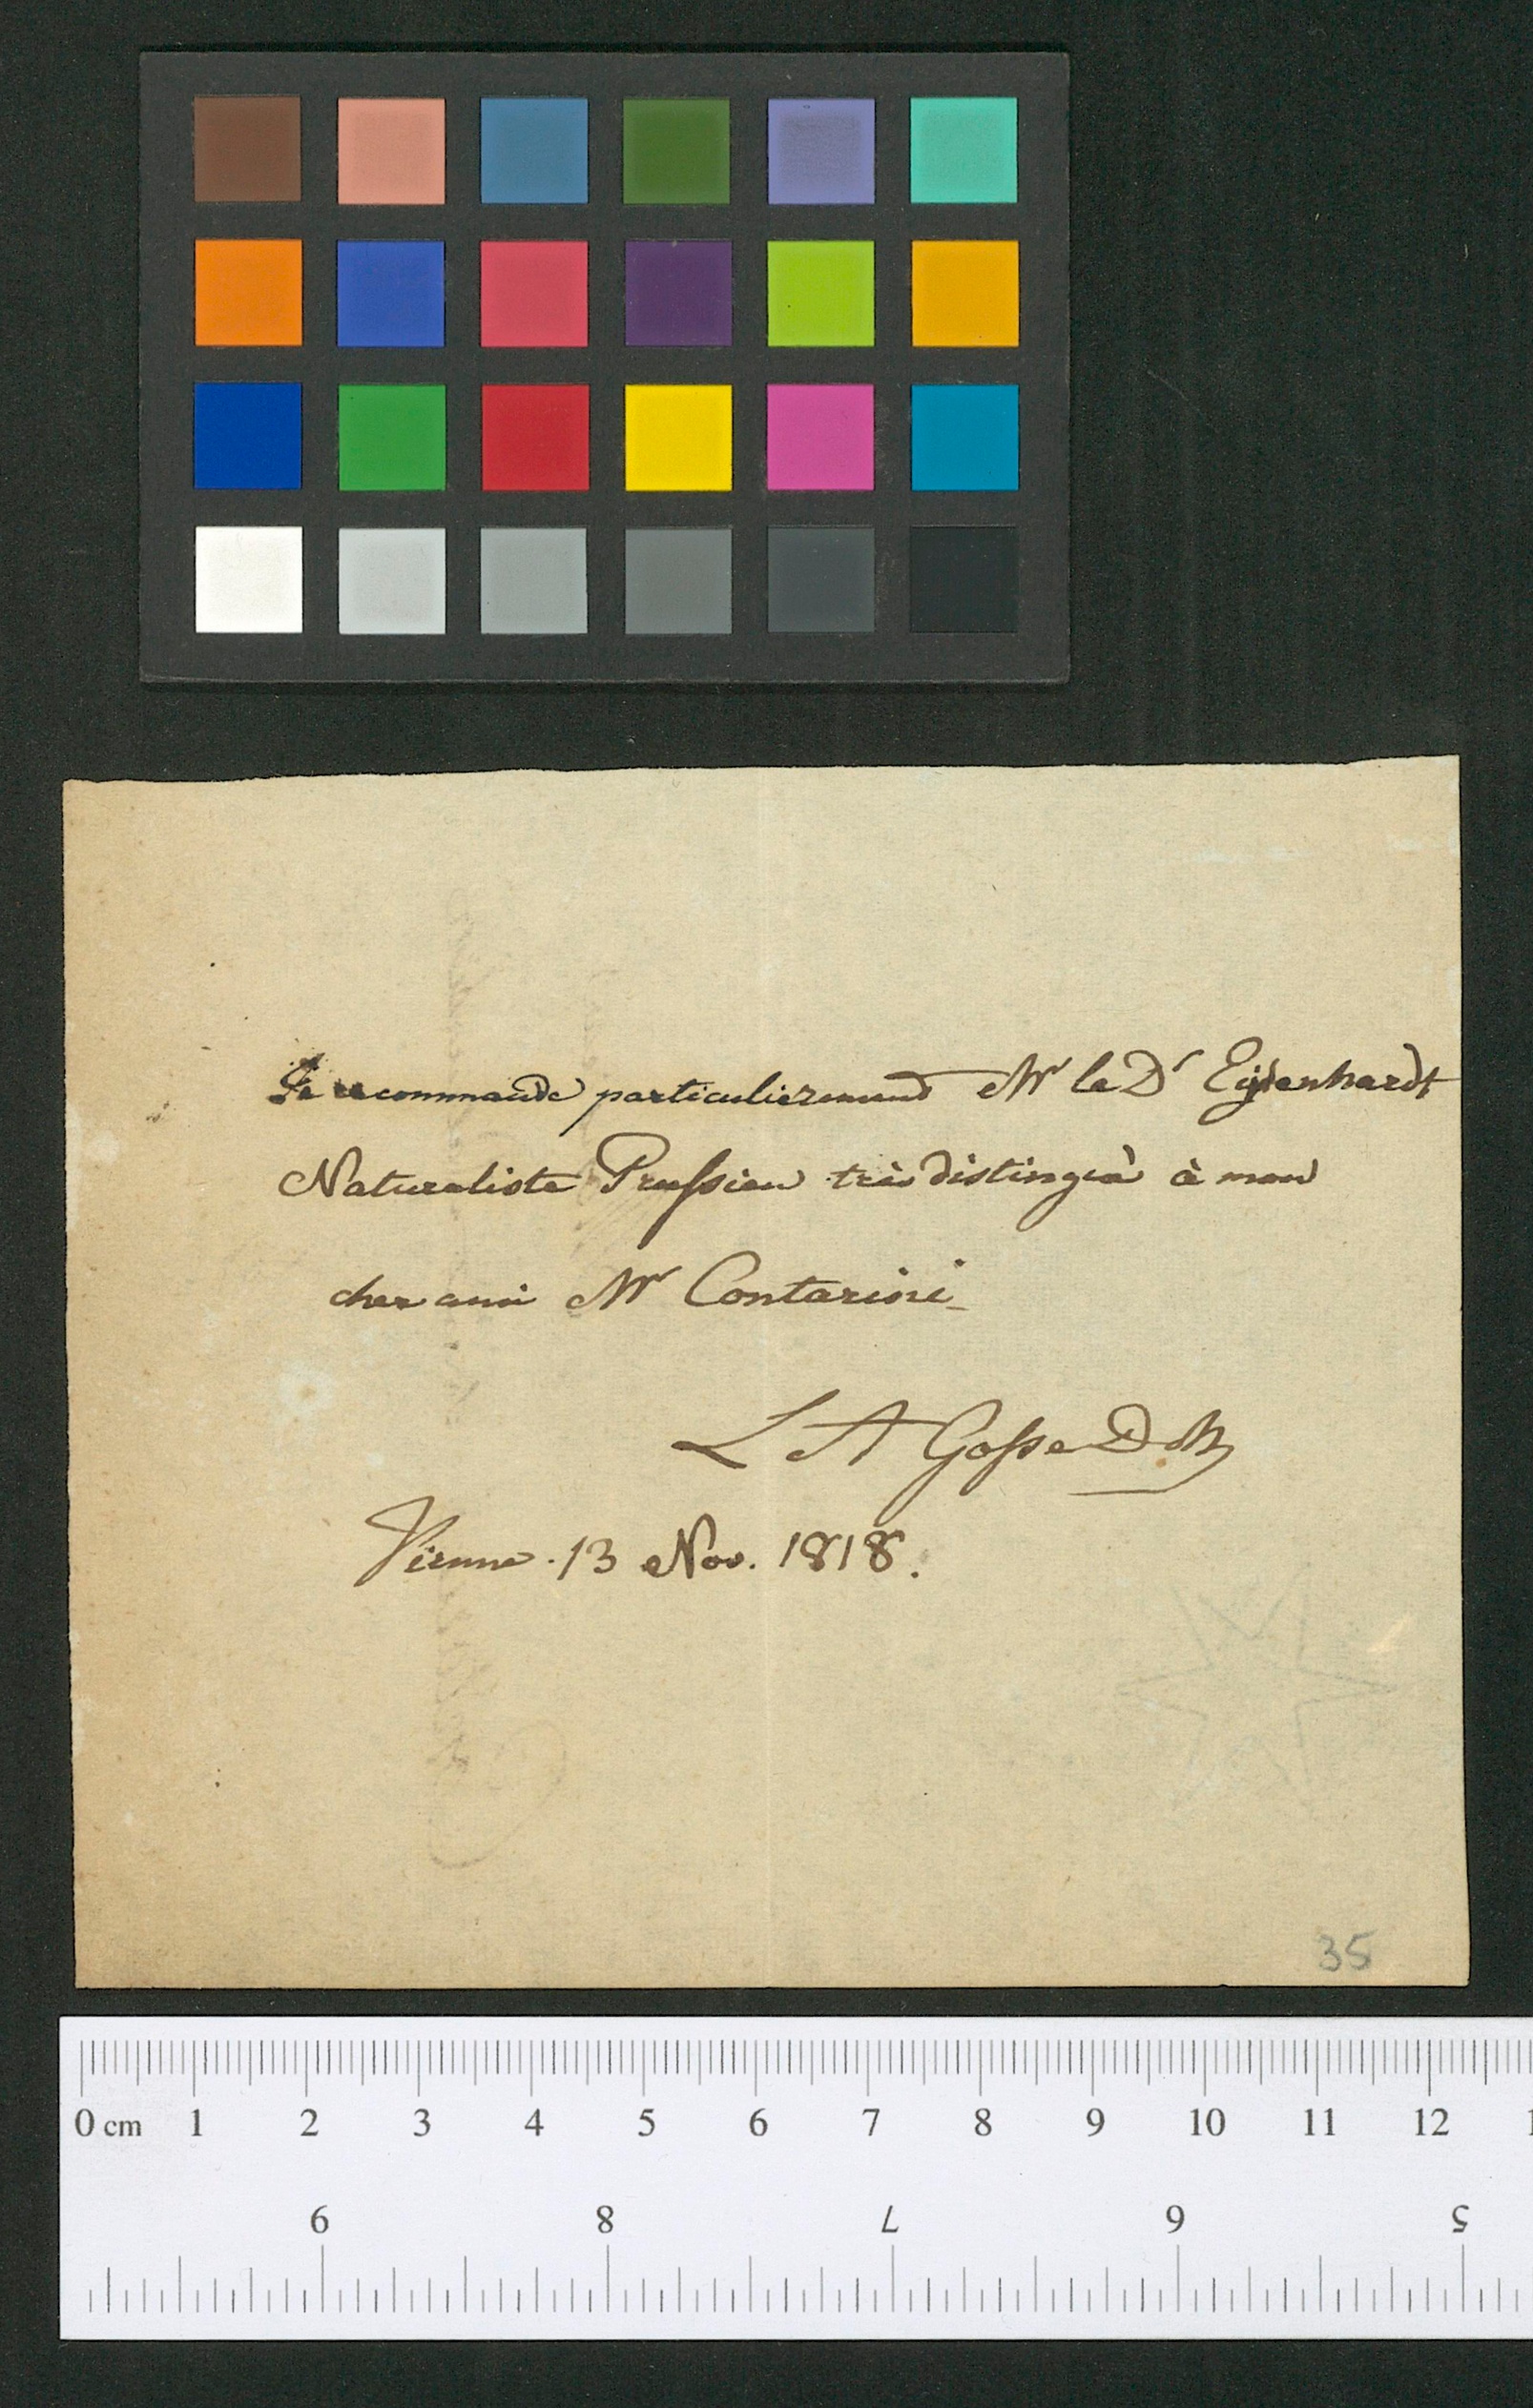 Je recommande particulierement Mr le Dr Eysenhardt
Naturaliste Prussien très distingué à mon
cher ami Mr Contarini
L A Gosse D M
Vienne. 13 Nov. 1818.
35
0 cm 1 2 3 4 5 6 7 8 9 10 11 12
9 8 7 6 5